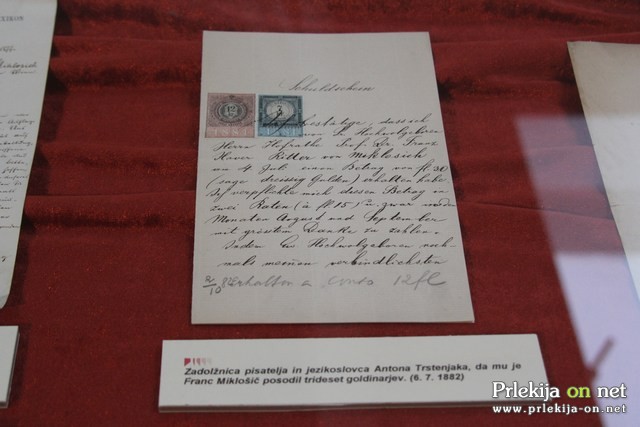 Schuldschein
bestätige, dass ich
von Sr. Hochwolgeboren
Herrn Hofrathe Prof. Dr. Franz
Xaver Ritter von Miklosich
am 4. Juli einen Betrag von fl. 30
(sage dreissig Gulden) erhalten habe.
Ich verpflichte mich diesen Betrag in
zwei Raten (à fl. 15) u. zwar in den
Monaten August und September
mit grösstem Danke zu zahlen.
Indem Hochwolgeboren noch-
mals meinen verbindlichsten
erhalten a conto 12 fl
Zadolžnica pisatelja in jezikoslovca Antona Trstenjaka, da mu je
Franc Miklošič posodil trideset goldinarjev. (6. 7. 1882)
Prlekija on net
www.prlekija-on.net